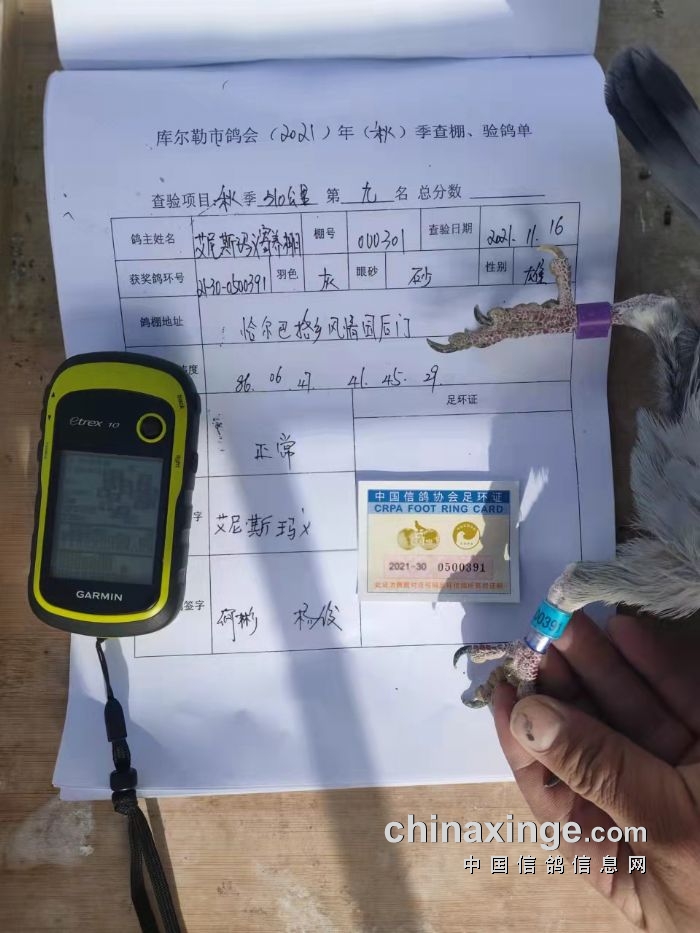 库尔勒市鸽会（2021）年（秋）季查棚、验鸽单
查验项目:秋季 310公里 第 九 名 总分数
鸽主姓名 艾尼斯玛 养棚 棚号 000301 查验日期 2021.11.16
获奖鸽环号 21-30-0500391 羽色 灰 眼砂 砂 性别 雄
鸽棚地址 恰尔巴格乡风情园后门
度 86. 06 47 41. 45. 29.
足环证
正常
字 艾尼斯玛
签字 何彬
中国信鸽协会足环证
CRPA FOOT RING CARD
2021-30 0500391
etrex 10
GARMIN
00391
chinaxinge.com
中国信鸽信息网